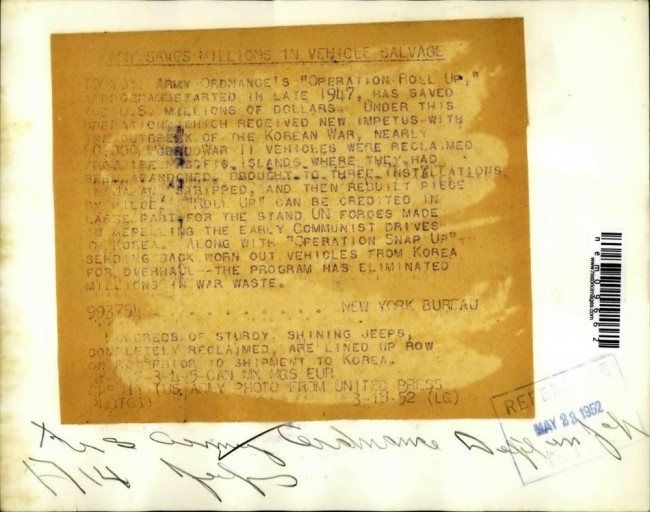 ARMY SAVES MILLIONS IN VEHICLE SALVAGE
ARMY ORDNANCE'S "OPERATION ROLL UP,"
STARTED IN LATE 1947, HAS SAVED
THE U.S. MILLIONS OF DOLLARS. UNDER THIS
OPERATION, WHICH RECEIVED NEW IMPETUS WITH
THE OUTBREAK OF THE KOREAN WAR, NEARLY
WORLD WAR II VEHICLES WERE RECLAIMED
PACIFIC ISLANDS WHERE THEY HAD
BEEN ABANDONED, BROUGHT TO THREE INSTALLATIONS
IN JAPAN, STRIPPED, AND THEN REBUILT PIECE
BY PIECE. "ROLL UP" CAN BE CREDITED IN
LARGE PART FOR THE STAND UN FORCES MADE
IN REPELLING THE EARLY COMMUNIST DRIVES
IN KOREA. ALONG WITH "OPERATION SNAP UP"--
SENDING BACK WORN OUT VEHICLES FROM KOREA
FOR OVERHAUL--THE PROGRAM HAS ELIMINATED
MILLIONS IN WAR WASTE.
NEW YORK BUREAU
HUNDREDS OF STURDY, SHINING JEEPS,
COMPLETELY RECLAIMED, ARE LINED UP ROW
ON ROW PRIOR TO SHIPMENT TO KOREA.
MGS EUR
(US ARMY PHOTO FROM UNITED PRESS
PHOTOS) 3-18-52 (LG)
REFERENCE
MAY 23 1952
www.historicimages.com
nem09662
Army Ordnance
17/14 Jeeps